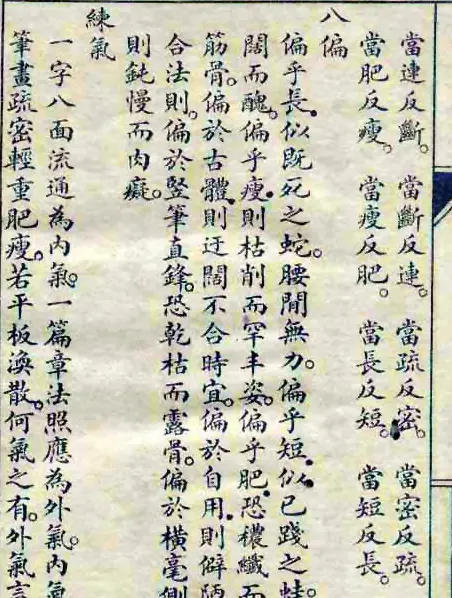 當連反斷。當斷反連。當疏反密。當密反疏。
當肥反瘦。當瘦反肥。當長反短。當短反長。
八偏
偏乎長。似既死之蛇。腰間無力。偏乎短。似已踐之蛙。
闊而醜。偏乎瘦。則枯削而罕丰姿。偏乎肥。恐穠纖而
筋骨。偏於古體。則迂闊不合時宜。偏於自用。則僻陋
合法則。偏於豎筆直鋒。恐乾枯而露骨。偏於橫毫側
則鈍慢而肉癡。
練氣
一字八面流通為內氣。一篇章法照應為外氣。內氣
筆畫疏密輕重肥瘦。若平板渙散。何氣之有。外氣言